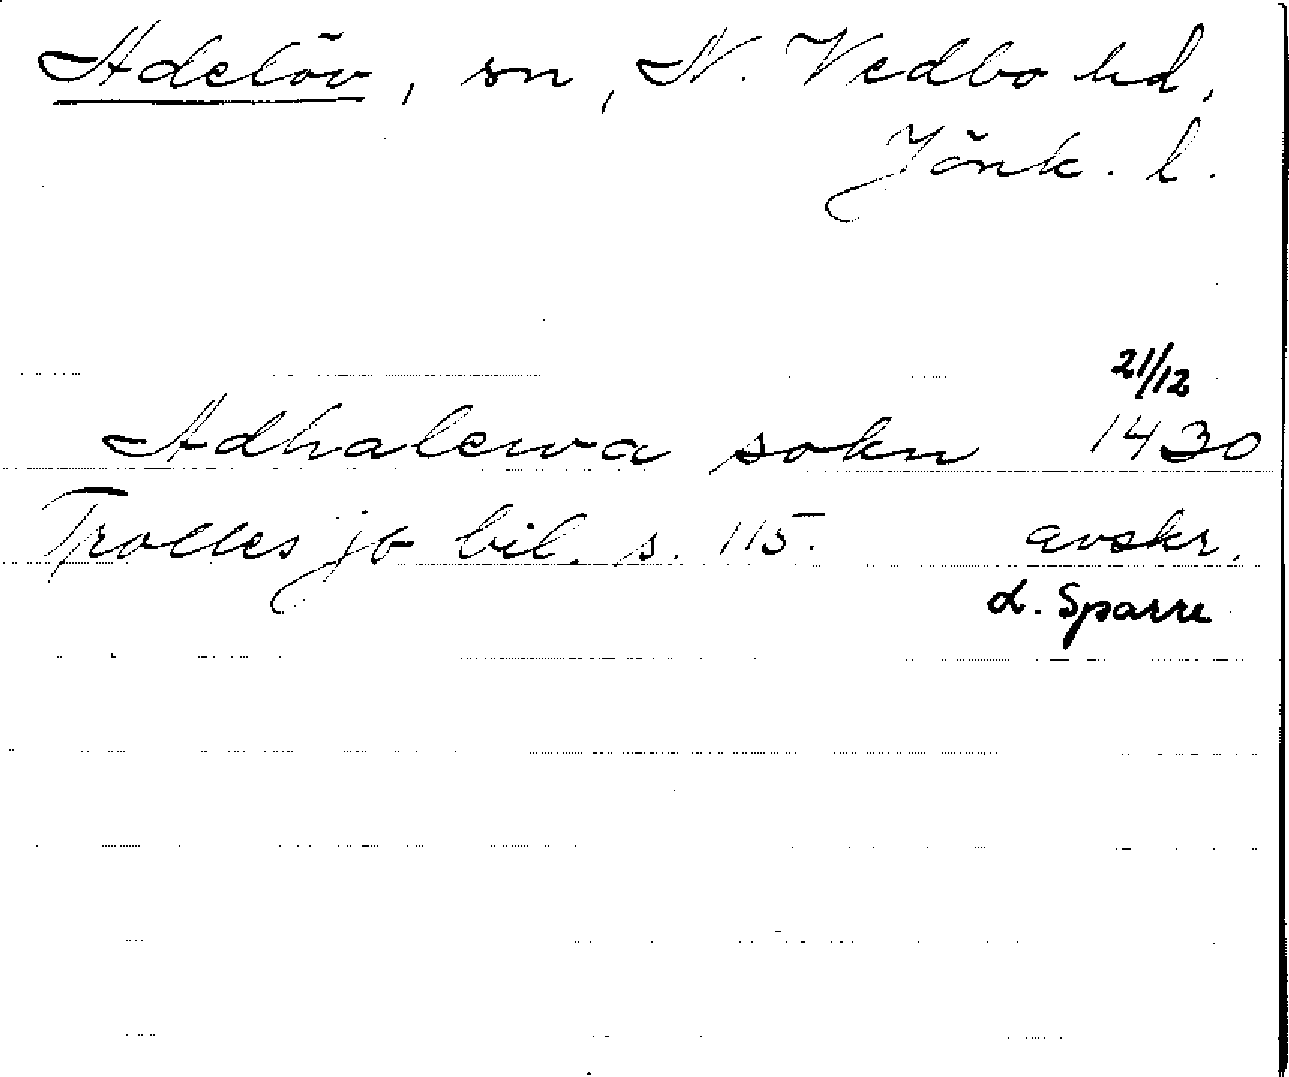 Adelöv, sn, N. Vedbo hd,
Jönk. l.
21/12
Adhalewa sokn 1430
Trolles jb bil. s. 115. avskr.
L. Sparre